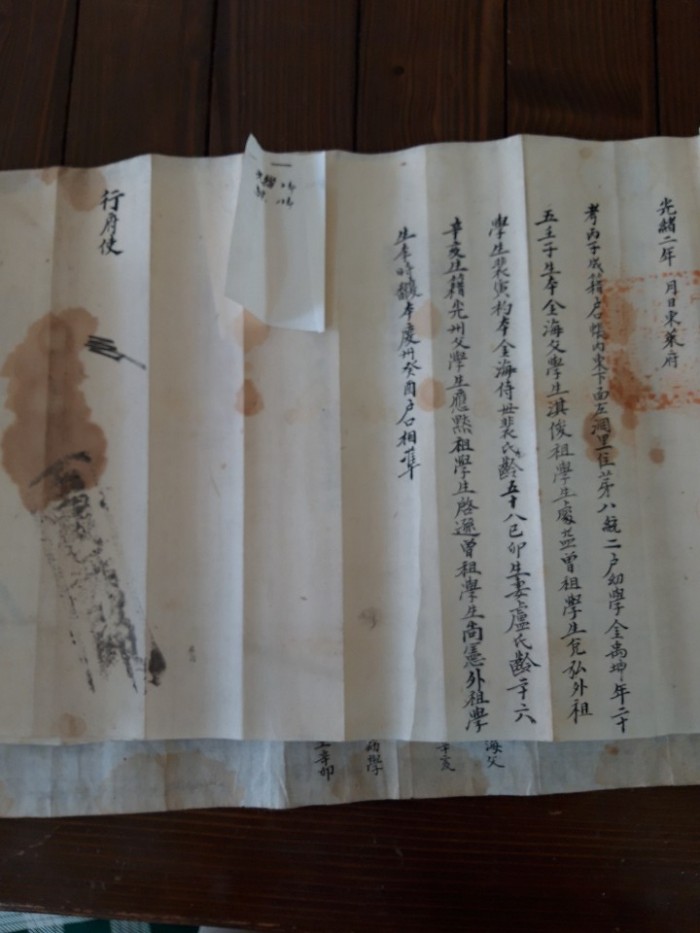 光緖二年 月日東萊府
考丙子成籍戶口帳內東下面左澗里住第八統二戶幼學金禹坤年二十
五壬子生本金海父學生淇俊祖學生慶益曾祖學生允弘外祖
學生裴寅杓本金海侍母裴氏齡五十八己卯生妻盧氏齡二十六
辛亥生籍光州父學生應點祖學生啓遜曾祖學生尙憲外祖學
生李時鑊本慶州癸酉戶口相準
行府使
海父
辛亥
幼學
辛卯